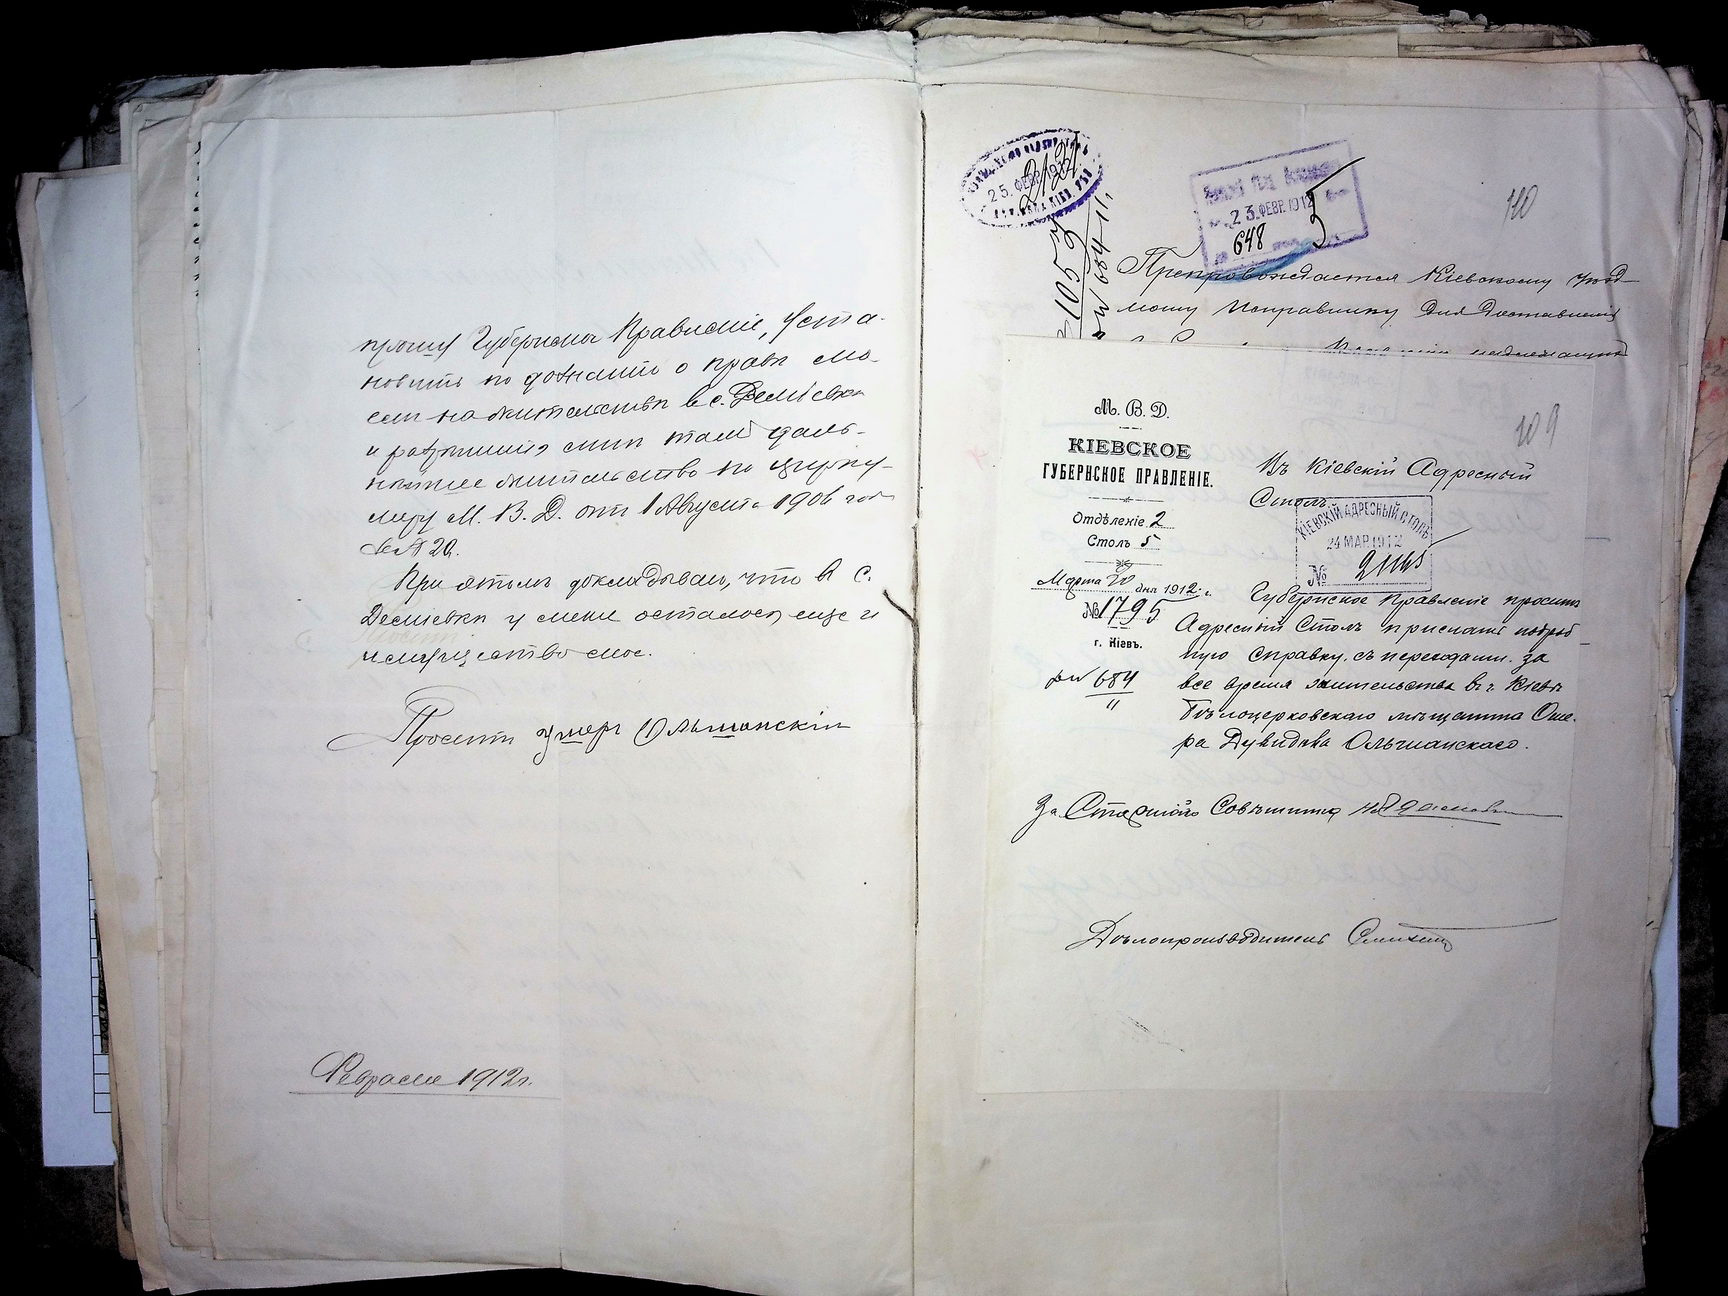 прошу Губернское Правленіе, уста-
новить по дознанію о правѣ мо-
ем на жительствѣ в с. Деміевкѣ
и разрѣшить мнѣ тамъ даль-
нѣйшее жительство по цирку-
ляру М. В. Д. отъ 1 Августа 1906 года
№ 20.
При этомъ докладываю, что в с.
Деміевкѣ у меня осталось еще и
имущество мое.
Проситъ Ушеръ Ольшанскій
Февраля 1912 г.
25. ФЕВР. 1912
2121
1057
684
23. ФЕВР. 1912
648
5
110
Препровождается Кіевскому Уѣзд-
ному Исправнику для доставленія
109
М. В. Д.
КІЕВСКОЕ
ГУБЕРНСКОЕ ПРАВЛЕНІЕ.
Отдѣленіе 2
Столъ 5
Марта 20 дня 1912 г.
№ 1795
г. Кіевъ.
684
Въ Кіевскій Адресный
Столъ.
КІЕВСКІЙ АДРЕСНЫЙ СТОЛЪ
24 МАР. 1912
№ 21165
Губернское Правленіе проситъ
Адресный Столъ прислать подроб-
ную справку, съ переездами, за
все время жительства въ г. Кіевѣ
Бѣлоцерковскаго мѣщанина Оше-
ра Дувидова Ольшанскаго.
За Старшаго Совѣтника
Дѣлопроизводитель